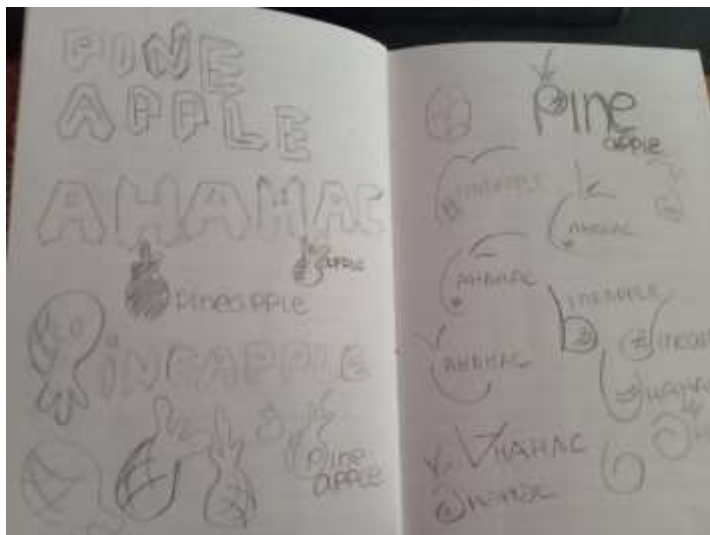 PINE
APPLE
AHAHAC
APPLE
PINEAPPLE
iNEAPPLE
Pine
APPLE
Pine
apple
PINEAPPLE
AHAHAC
AHAHAC
INEAPPLE
AHAHAC
HAHAC